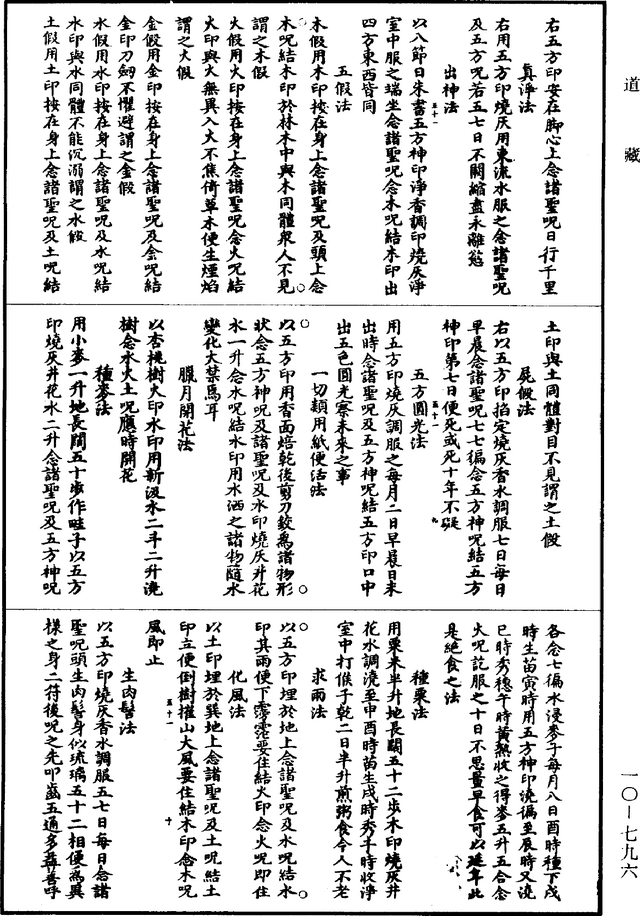 道藏
右五方印安在脚心上念諸聖呪日行千里
真淨法
右用五方印燒灰用東流水服之念諸聖呪
及五方呪若五七日不關縮盡永離慾
出神法
五十一
以八節日朱書五方神印淨香調印燒灰淨
室中服之端坐念諸聖呪念木呪結木印出
四方東西皆同
五假法
木假用木印按在身上念諸聖呪及頭上念
木呪結木印於林木中與木同體衆人不見
謂之木假
火假用火印按在身上念諸聖呪念火呪結
火印與火無異入火不焦倚草木便生煙焰
謂之火假
金假用金印按在身上念諸聖呪及金呪結
金印刀劒不懼避謂之金假
水假用水印按在身上念諸聖呪及水呪結
水印與水同體不能沉溺謂之水假
土假用土印按在身上念諸聖呪及土呪結
土印與土同體對目不見謂之土假
屍假法
右以五方印掐定燒灰香水調服七日每日
早晨念諸聖呪七七徧念五方神呪結五方
神印第七日便死或死十年不礙
五方圓光法
五十一
九
用五方印燒灰調服之每月二日早晨日未
出時念諸聖呪及五方神呪結五方印口中
出五色圓光察未來之事
一切類用紙便活法
以五方印用香面焙乾後剪刀鉸爲諸物形
狀念五方神呪及諸聖呪及水印燒灰井花
水一升念水呪結水印用水洒之諸物隨水
變化大禁焉耳
臘月開花法
以杏桃樹火印水印用新汲水二斗二升澆
樹念水火土呪應時開花
種麥法
用小麥一升地長闊五十步作畦子以五方
印燒灰井花水二升念諸聖呪及五方神呪
各念七徧水浸麥子每月八日酉時種下戌
時生苗寅時用五方神印澆徧至辰時又澆
巳時秀穗午時黄熟收之得麥五升五合念
火呪訖服之十日不思量早食可以延年此
是絶食之法
種粟法
用粟米半升地長闊五十二步木印燒灰井
花水調澆至申酉時苗生戌時秀子時收淨
室中打㨋子乾二日半升煎粥食令人不老
求雨法
以五方印埋於地上念諸聖呪及水呪結水
印其雨便下霶霈要住結火印念火呪即住
化風法
以土印埋於巽地上念諸聖呪及土呪結土
印立便倒樹摧山大風要住結木印念木呪
五十一
十
風即止
生肉髻法
以五方印燒灰香水調服五七日每日念諸
聖呪頭生肉髻身似琉璃五十二相便爲異
樣之身二符後呪之先叩齒五通多益善呼
一〇—七九六